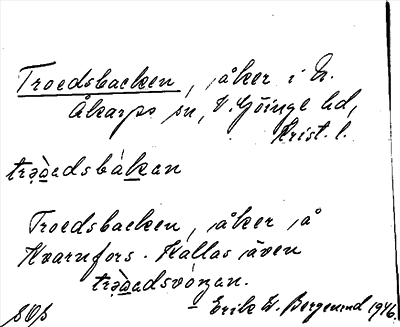 Troedsbacken, åker i N.
Åkarps sn, V. Göinge hd,
Krist. l.
trǫ̀ədsbákan
Troedsbacken, åker å
Kvarnfors. Kallas även
Erik W. Bergmund 1946.